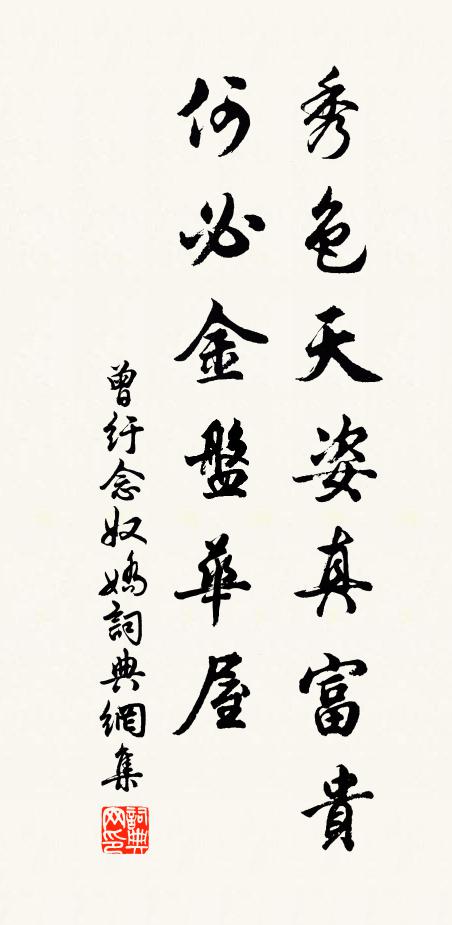 秀色天姿真富貴
何必金盤華屋
曾紆念奴嬌詞典網集
詞典网印